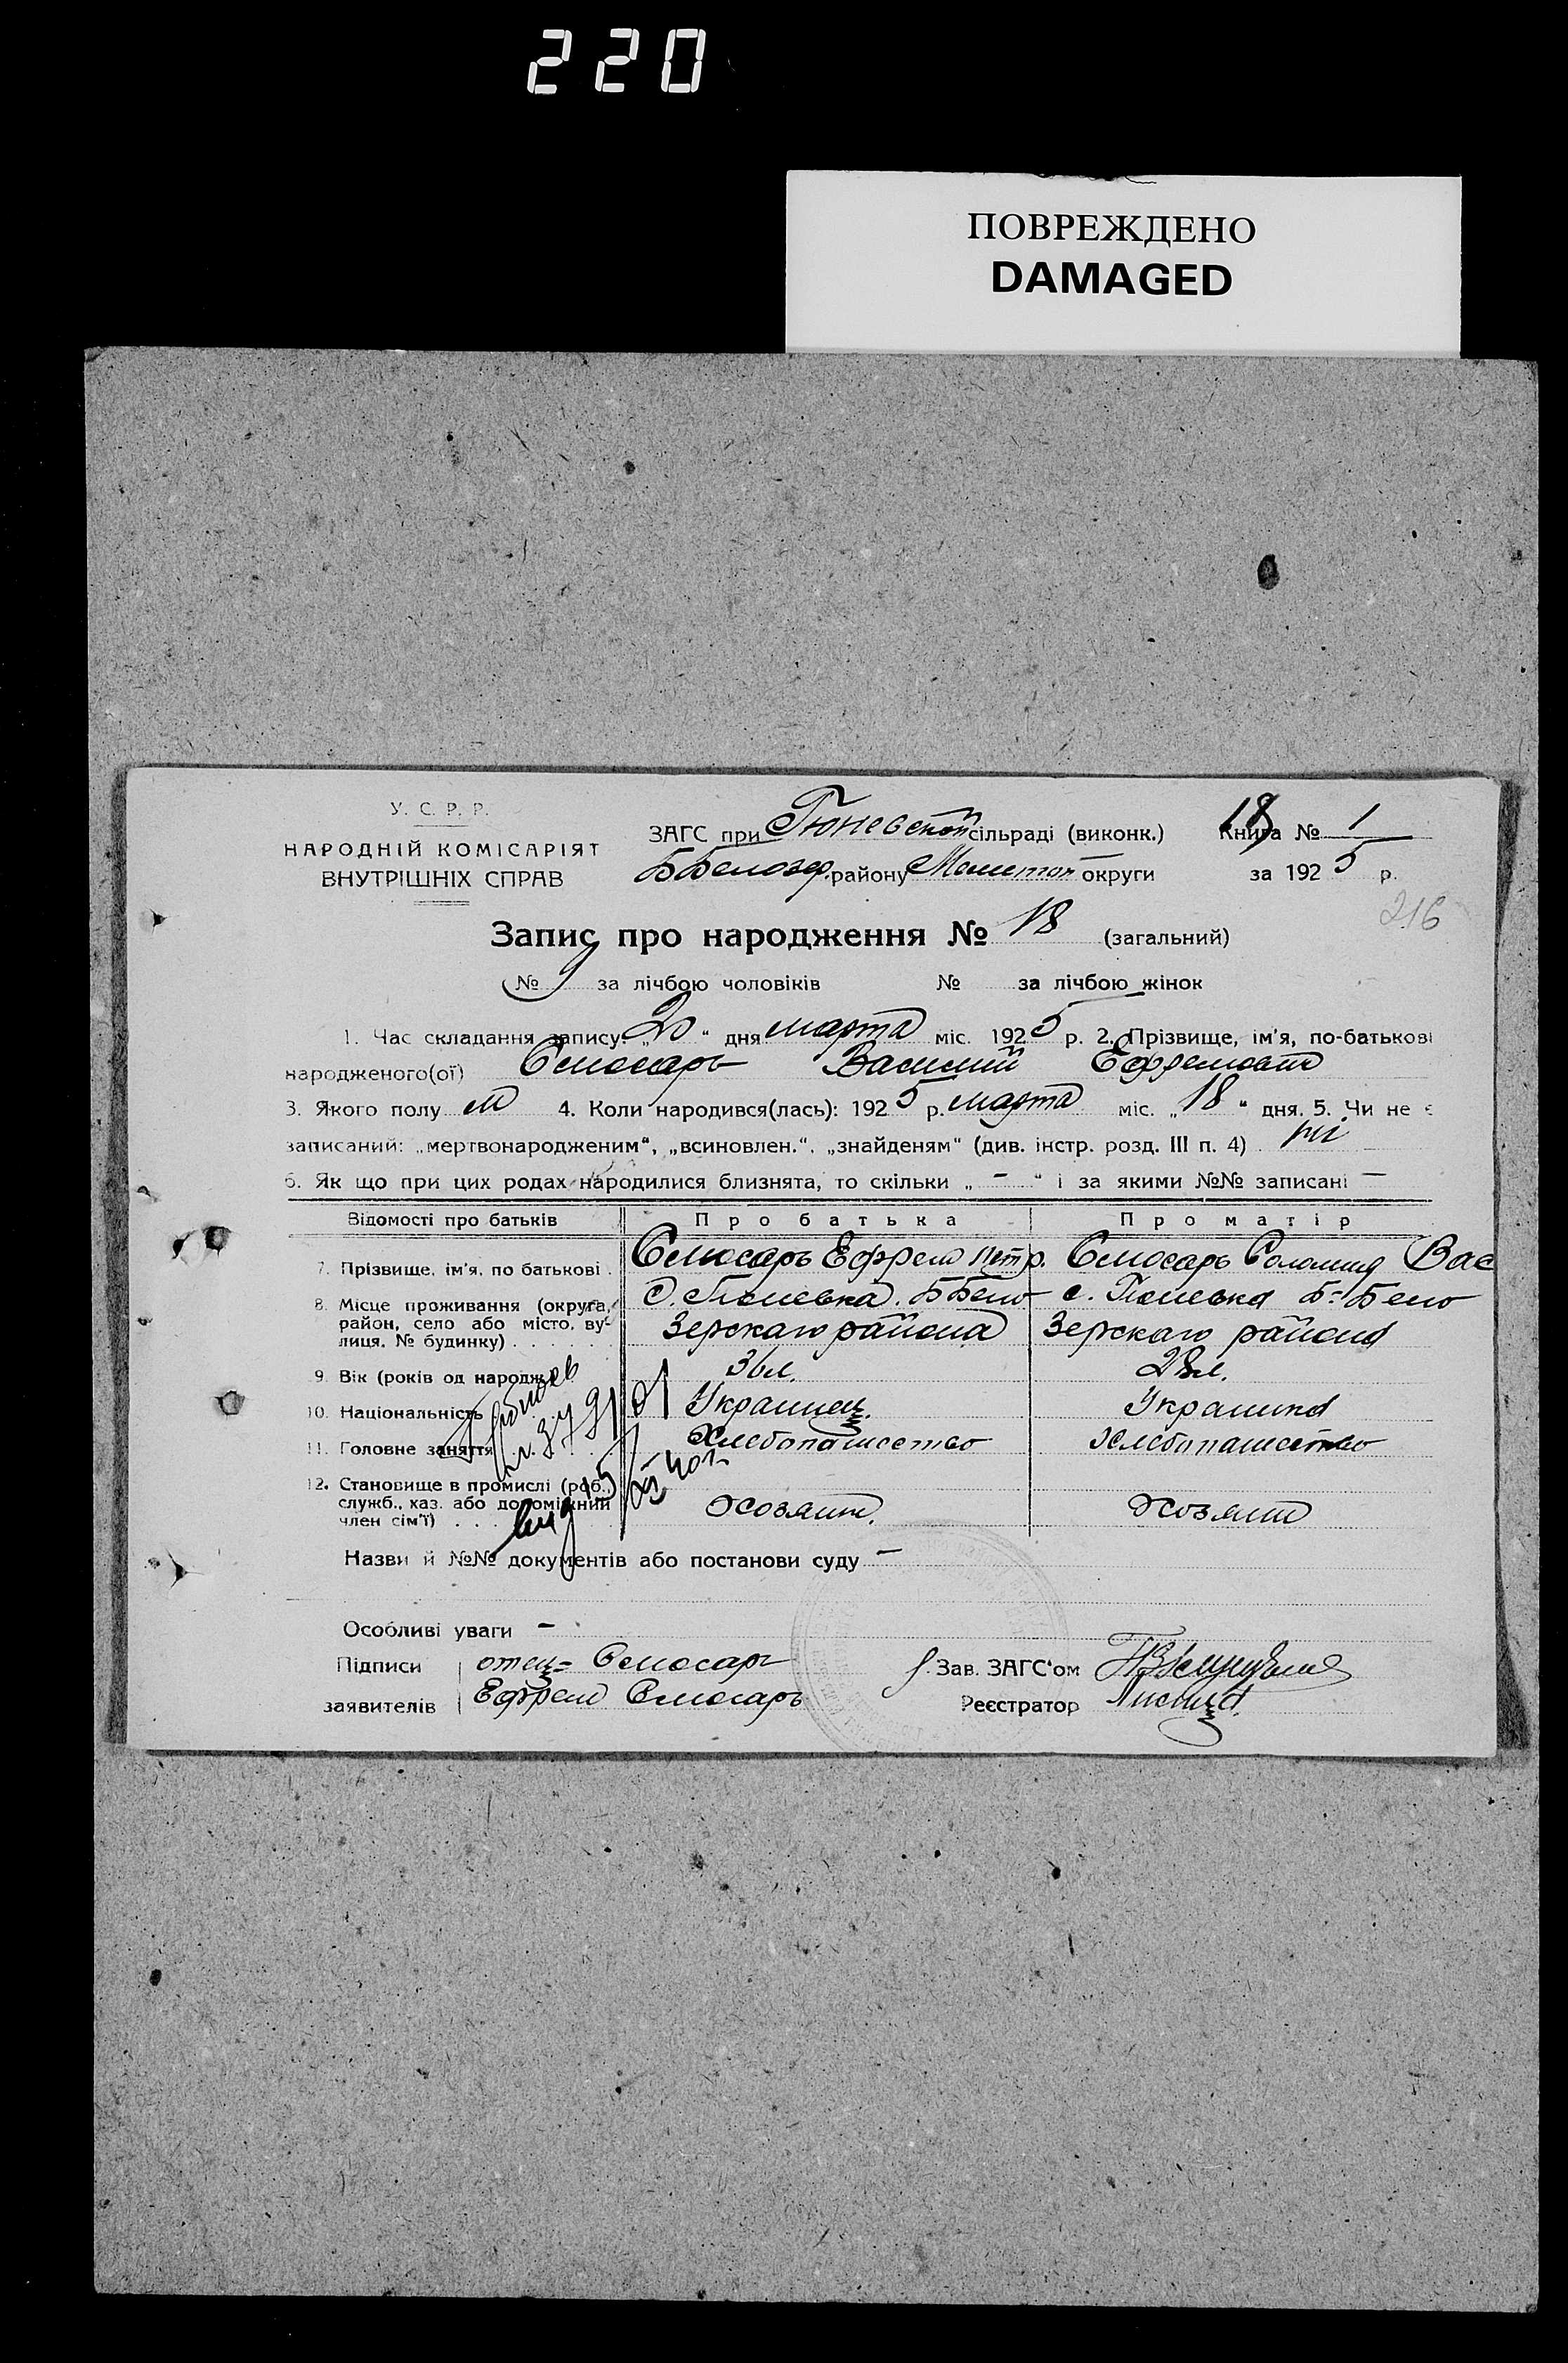 220
ПОВРЕЖДЕНО
DAMAGED
У. С. Р. Р.
НАРОДНІЙ КОМІСАРІЯТ
ВНУТРІШНІХ СПРАВ
ЗАГС при Тюневской сільраді (виконк.)
Книга № 1
ББелозер. району Мелитоп округи
за 1925 р.
216
Запис про народження № 18 (загальний)
№ 9 за лічбою чоловіків № за лічбою жінок
1. Час складання запису: „20“ дня марта міс. 1925 р. 2. Прізвище, ім'я, по-батькові
народженого(ої) Слюсарь Василий Ефремович
3. Якого полу м 4. Коли народився(лась): 1925 р. марта міс. „18“ дня. 5. Чи не є
записаний: „мертвонародженим“, „всиновлен.“, „знайденям“ (див. інстр. розд. III п. 4) ні
6. Як що при цих родах народилися близнята, то скільки „ - “ і за якими №№ записані —
Відомості про батьків Про батька Про матір
7. Прізвище, ім'я, по батькові . Слюсарь Ефрем Петр. Слюсарь Соломия Вас
8. Місце проживання (округа, район, село або місто, вулиця, № будинку) . . . . . .
с. Тюневка. ББело- с. Тюневка Б=Бело
Зерскаго района Зерскаго района
9. Вік (років од народж. 36 л. 28 л.
10. Національність Украинец. Украинка
11. Головне заняття Хлебопашество Хлебопашество
12. Становище в промислі (роб.,
служб., каз. або допоміжний
член сім'ї) . . . Хозяин. Хозяин
Назви й №№ документів або постанови суду —
Особливі уваги —
Підписи отец= Слюсарь
заявителів Ефрем Слюсарь
Зав. ЗАГС'ом
Реєстратор